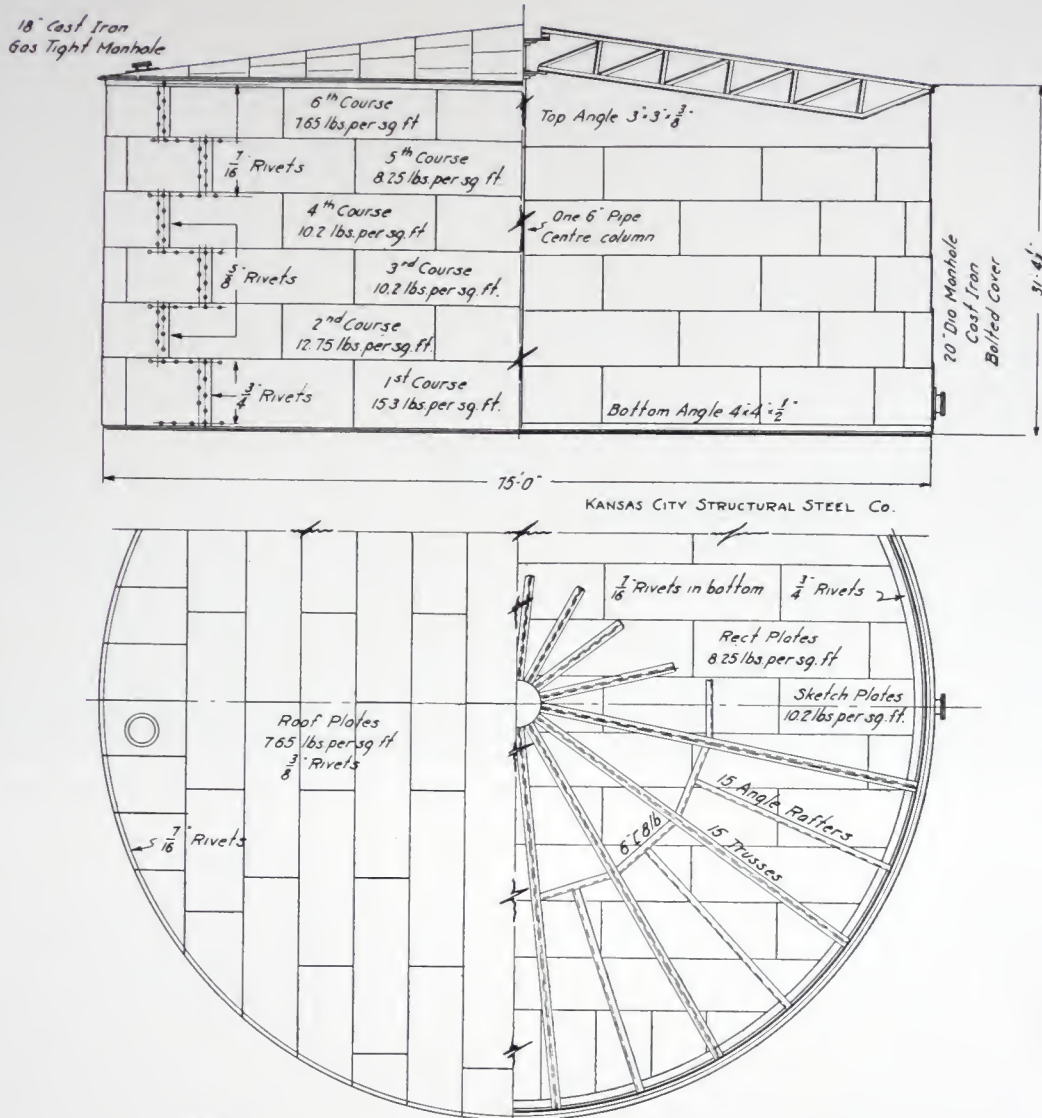 18" Cast Iron
Gas Tight Manhole
6th Course
7.65 lbs. per sq. ft
Top Angle 3"x3"x3/8"
7/16" Rivets
5th Course
8.25 lbs. per sq. ft.
4th Course
10.2 lbs. per sq. ft
One 6" Pipe
Centre column
5/8" Rivets
3rd Course
10.2 lbs. per sq. ft.
2nd Course
12.75 lbs. per sq. ft.
3/4" Rivets
1st Course
15.3 lbs. per sq. ft.
Bottom Angle 4"x4"x1/2"
20" Dia Manhole
Cast Iron
Bolted Cover
75'-0"
KANSAS CITY STRUCTURAL STEEL CO.
7/16" Rivets in bottom
3/4" Rivets
Rect Plates
8.25 lbs. per sq. ft
Sketch Plates
10.2 lbs per sq. ft.
Roof Plates
7.65 lbs per sq ft
3/8" Rivets
15 Angle Rafters
15 Trusses
7/16" Rivets